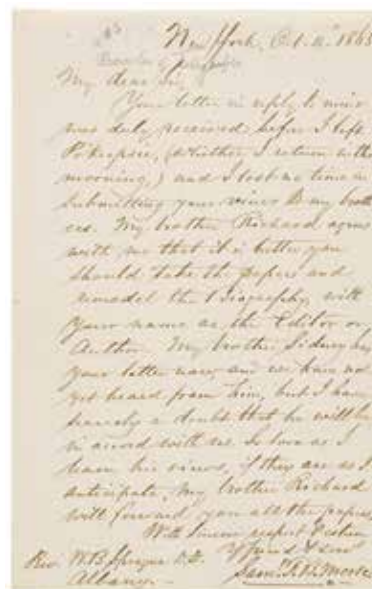 New York, Oct. 11th 1865
My dear Sir,
Your letter in reply to mine
was duly received before I left
Po'keepsie, (whither I return in the
morning,) and I lost no time in
submitting your views to my broth
ers. My brother Richard agrees
with me that it is better you
should take the papers and
remodel the biography, with
your name as the Editor or
Author. My brother Sidney has
your letter now, and we have not
yet heard from him, but I have
scarcely a doubt that he will be
in accord with us. So soon as I
learn his views, if they are as I
anticipate, my brother Richard
will forward you all the papers.
With sincere respect & esteem
Yr friend & servt
Rev. W. B. Sprague D.D.
Saml. F. B. Morse
Albany.